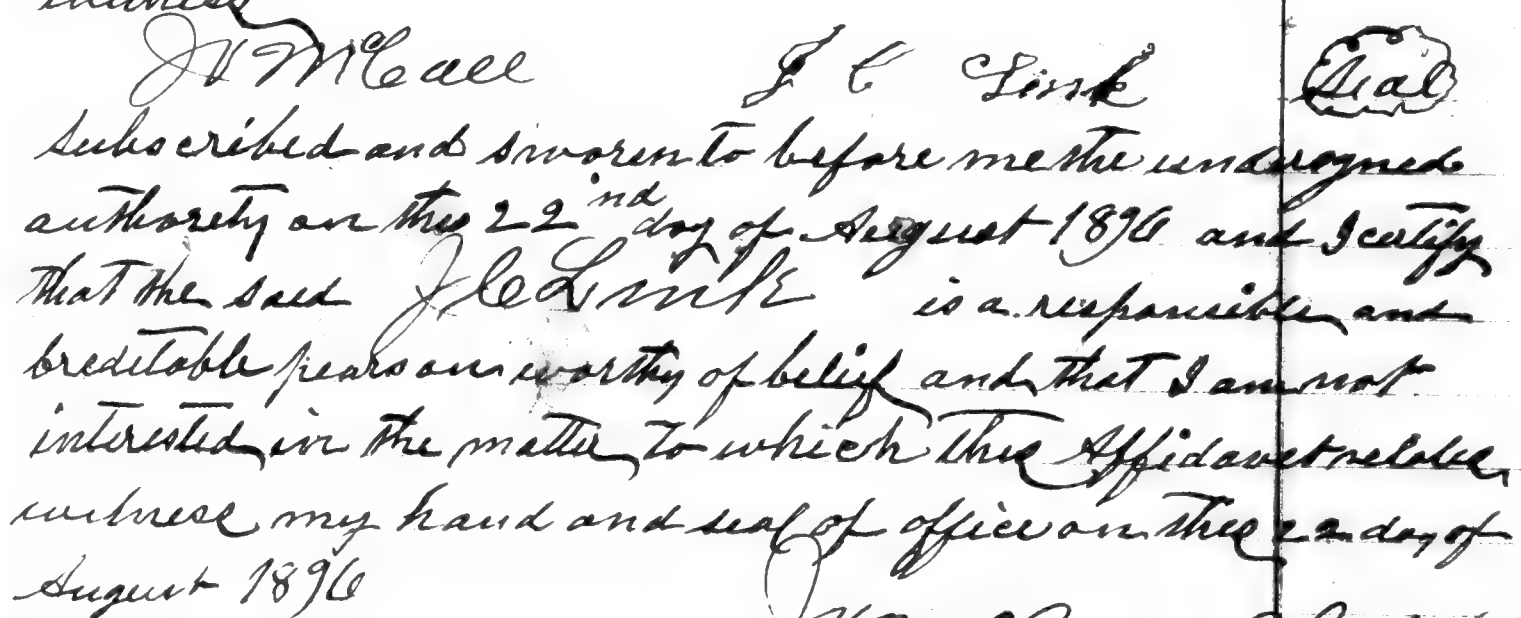 witness
J V McCall J C Link Seal
subscribed and sworen to before me the undersogned
authorety on this 22nd day of August 1896 and I certify
that the said J C Link is a responsible and
creditable pearson worthy of belief and that I am not
interested in the matter to which this Affidavet relates
witness my hand and seal of office on this 22 day of
August 1896